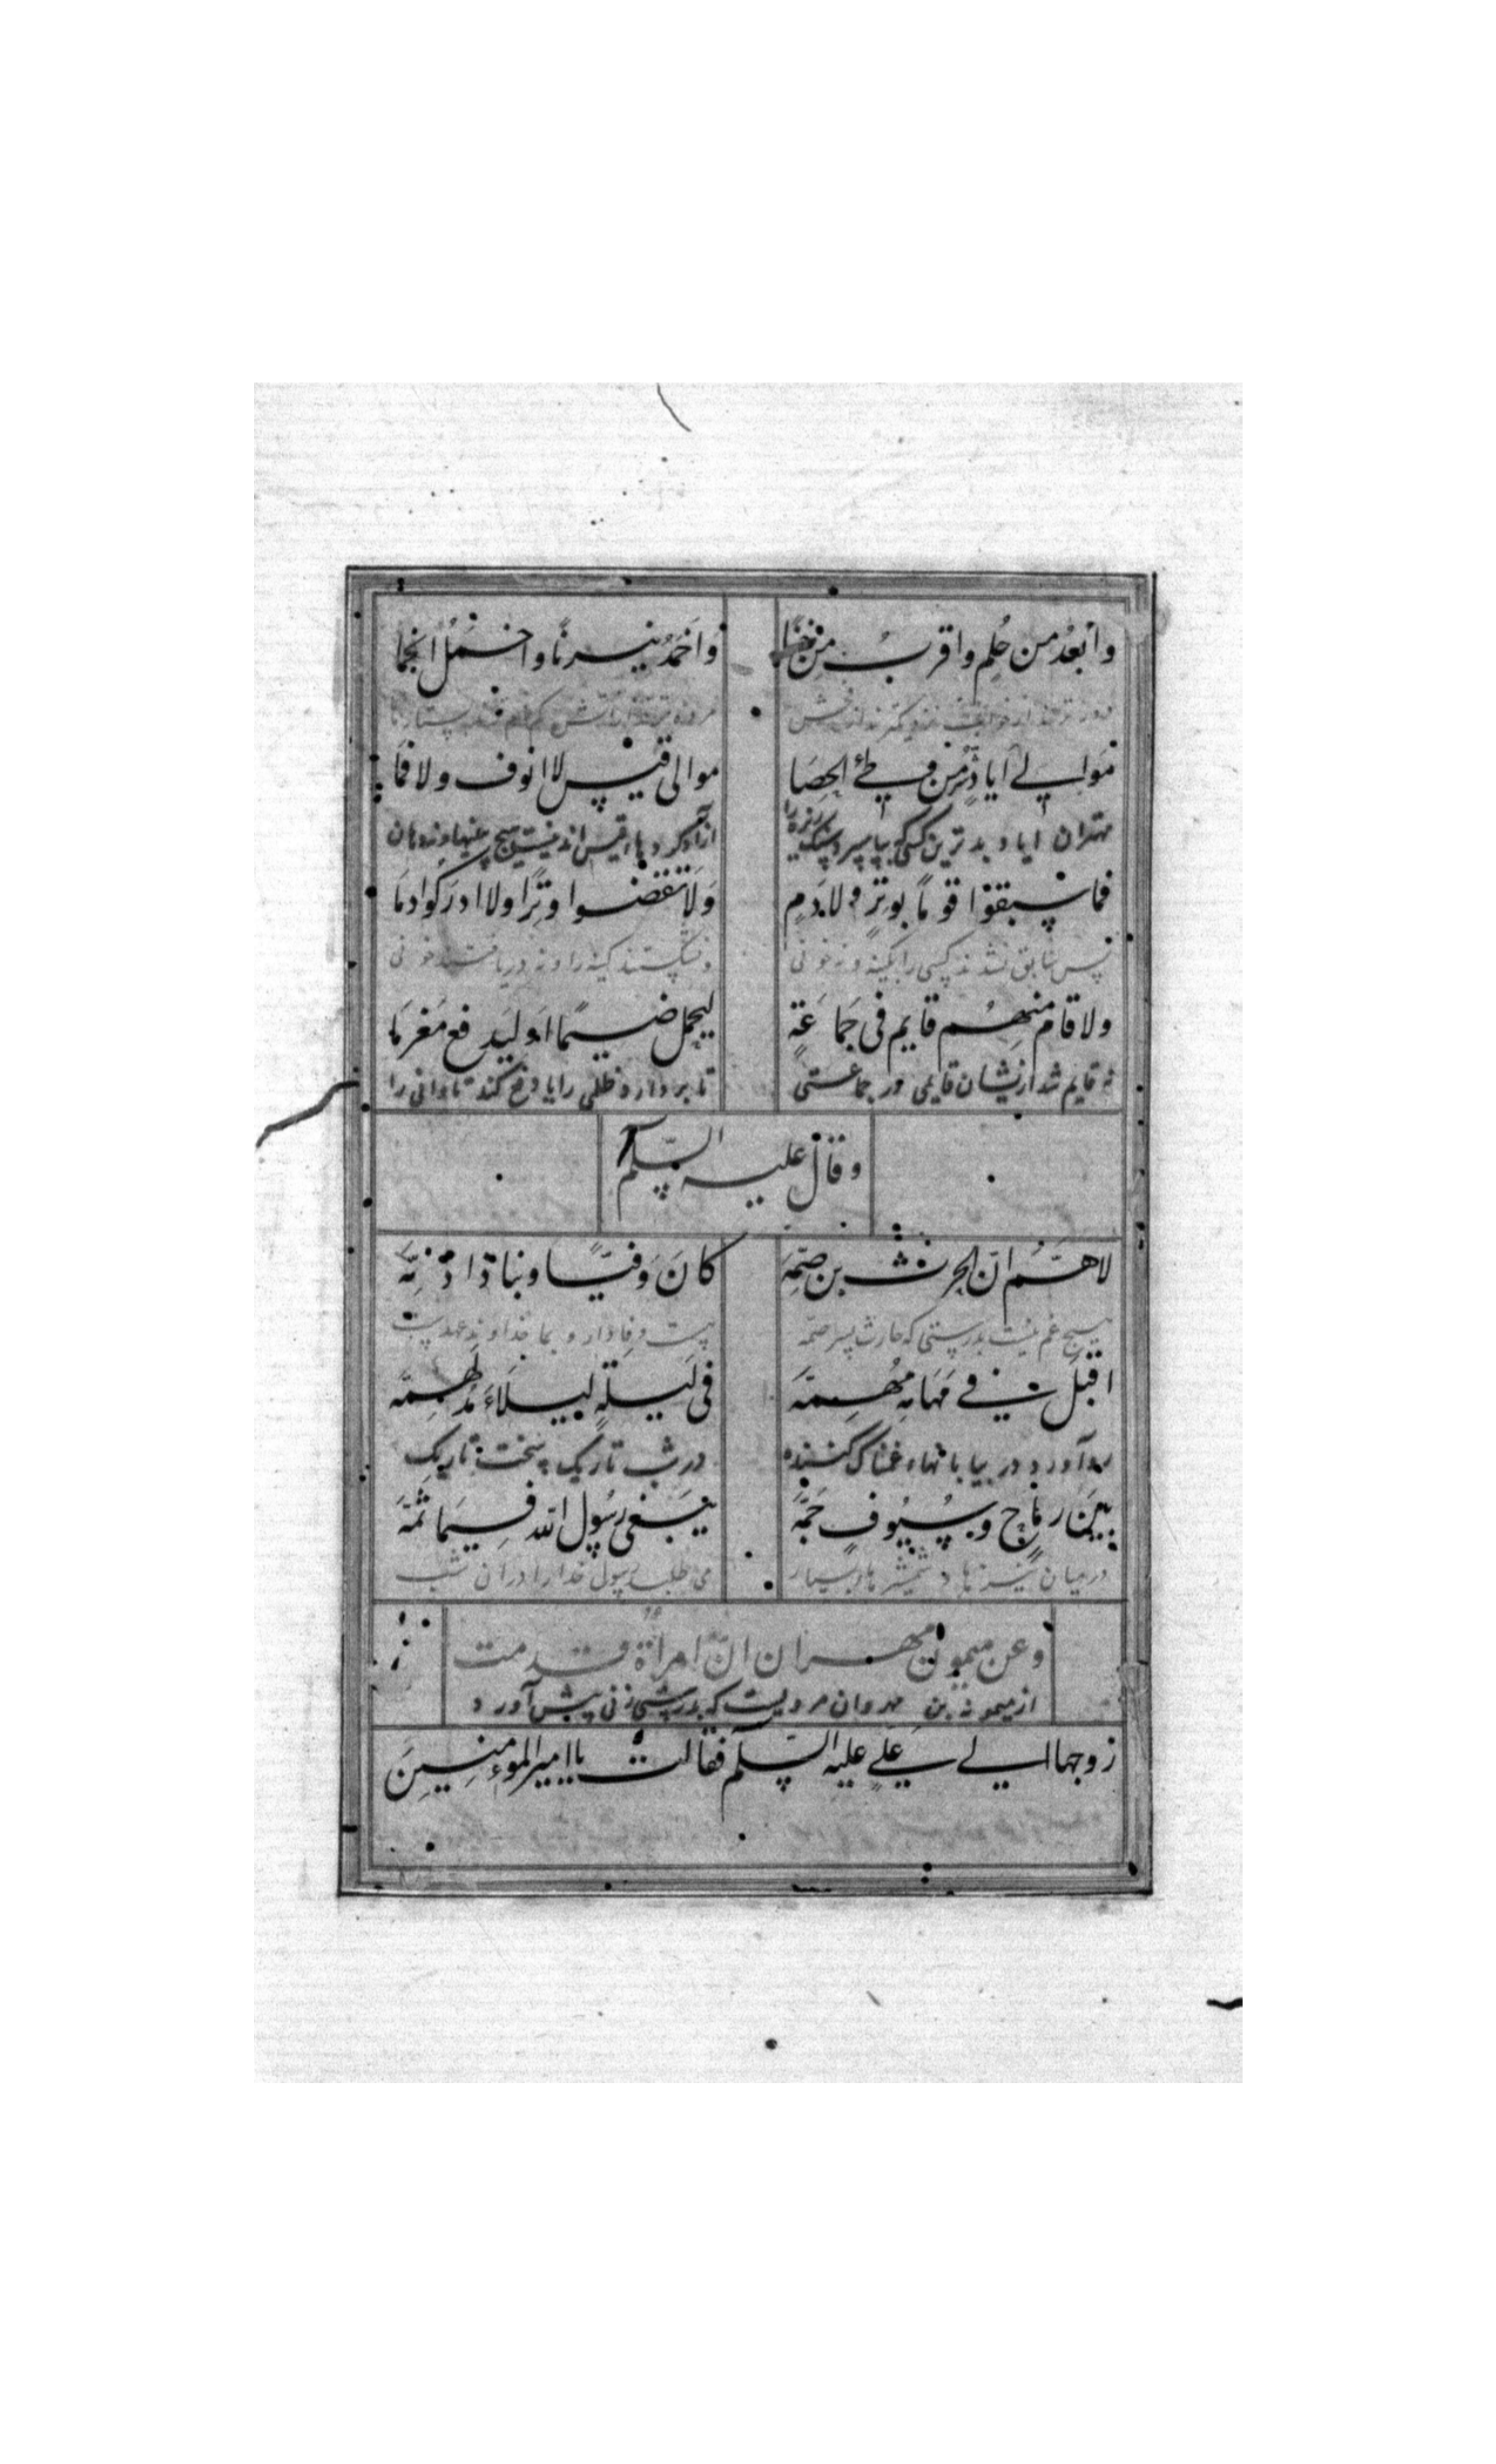 وابعد من حلم واقرب من خنا واخمد نیرنا واخمل انجما
موالی ایاد شر من وطئ الحصا موالی قیس لا انوف ولا فما
مهتران ایاد بدترین کسی که بپا سپرد سنک ریزه را ازاد کردهاء قیس اند نیست هیچ بینیها و نه دهان
فما سبقوا قوما بوتر ولا بدم ولا نقضوا وترا ولا ادرکوا دما
پس سابق نشدند کسی را بکینه و نه خونی و نشکستند کینه را و نه دریافتند خونی
ولا قام منهم قایم فی جماعة لیحمل ضیما او لیدفع مغرما
نه قایم شد ازیشان قایمی در جماعتی تا بردارد ظلمی را یا دفع کند تاوانی را
وقال علیه السلم
لاهم ان الحرث بن صمه کان وفیا وبنا ذا ذمه
هیچ غم نیست بدرستی که حارث پسر صمه هست وفادار و بما خداوند عهدست
اقبل فی مهامه مهمه فی لیلة لیلاء مدلهمه
رو آورد در بیابانهاء غمناک کننده در شب تاریک سخت تاریک
بین رماح وسیوف جمه یبغی رسول الله فیما ثمه
درمیان نیزها و شمشیرهاء بسیار می طلبد رسول خدا را دران شب
وعن میمون مهران ان امراة قدمت
از میمونه بن مهروان مرویست که بدرستی زنی پیش آورد
زوجها الی علی علیه السلم فقالت یا امیر المؤمنین